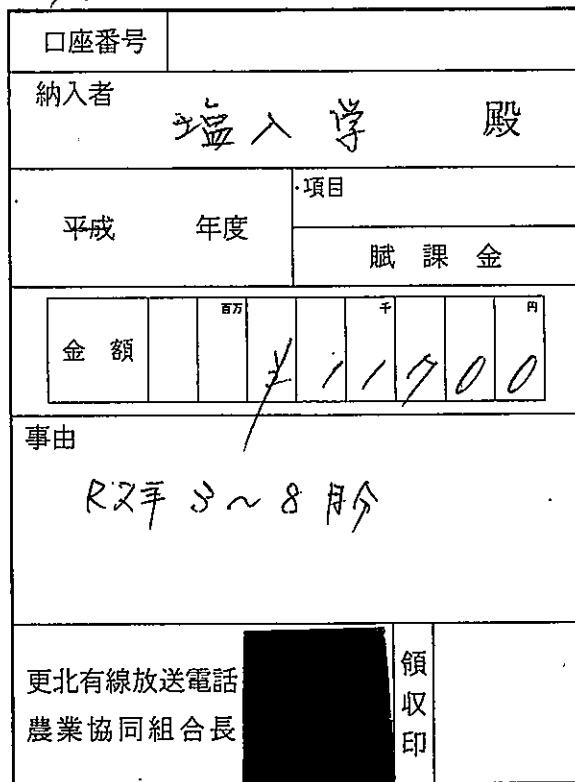 口座番号
納入者
塩入学 殿
平成 年度
項目
賦課金
金額 百万 千 円
¥11700
事由
R2年3～8月分
更北有線放送電話
農業協同組合長
領収印